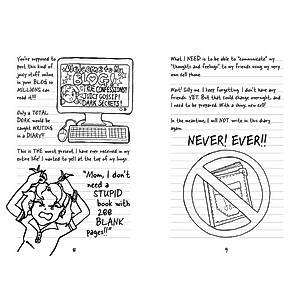 You're supposed to
post this kind of
juicy stuff online
in your BLOG so
MILLIONS can
read it!!!
Welcome to My
BLOG!
TRUE CONFESSIONS!
JUICY GOSSIP!
DARK SECRETS!
Only a TOTAL
DORK would be
caught WRITING
in a DIARY!!!
This is THE worst present I have ever received in my
entire life! I wanted to yell at the top of my lungs,
"Mom, I don't
need a
STUPID
book with
288
BLANK
pages!!"
8
What I NEED is to be able to "communicate" my
"thoughts and feelings" to my friends using my very
own cell phone.
Wait! Silly me. I keep forgetting. I don't have any
friends. YET. But that could change overnight, and
I need to be prepared. With a shiny, new cell!
In the meantime, I will NOT write in this diary
again.
NEVER! EVER!!
9